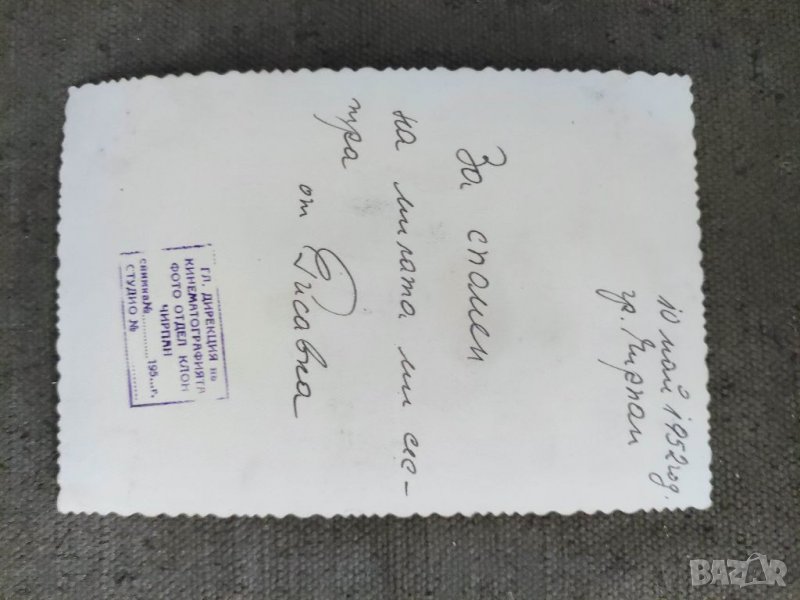 10 май 1952 год.
гр. Чирпан
За спомен
на милата ми сес-
тра
от
ГЛ. ДИРЕКЦИЯ по
КИНЕМАТОГРАФИЯТА
ФОТО ОТДЕЛ КЛОН
ЧИРПАН
снимка №............195...г.
СТУДИО №............
BAZAR